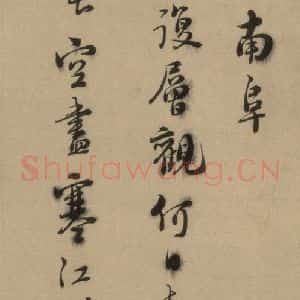 南阜
層觀何日
空盡寒江
Shufawang.CN